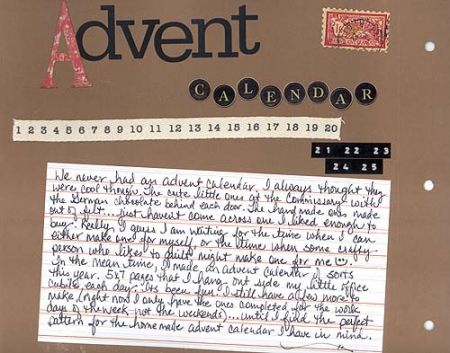 Advent
CALENDAR
1 2 3 4 5 6 7 8 9 10 11 12 13 14 15 16 17 18 19 20
21 22 23
24 25
We never had an advent calendar. I always thought they
were cool though. The cute little ones at the Commissary with
the German chocolate behind each door. The hand made ones made
out of felt... just haven't come across one I liked enough to
buy. Really, I guess I am waiting for the time when I can
either make one for myself or the time when some crafty
person who likes to quilt might make one for me
In the mean time, I made an advent calendar of sorts
this year. 5x7 pages that I hang out side my little office
cubicle each day. Its been fun. I still have a few more to
make (right now I only have the ones completed for the work
days of the week not the weekends)... until I find the perfect
pattern for the homemade advent calendar I have in mind.